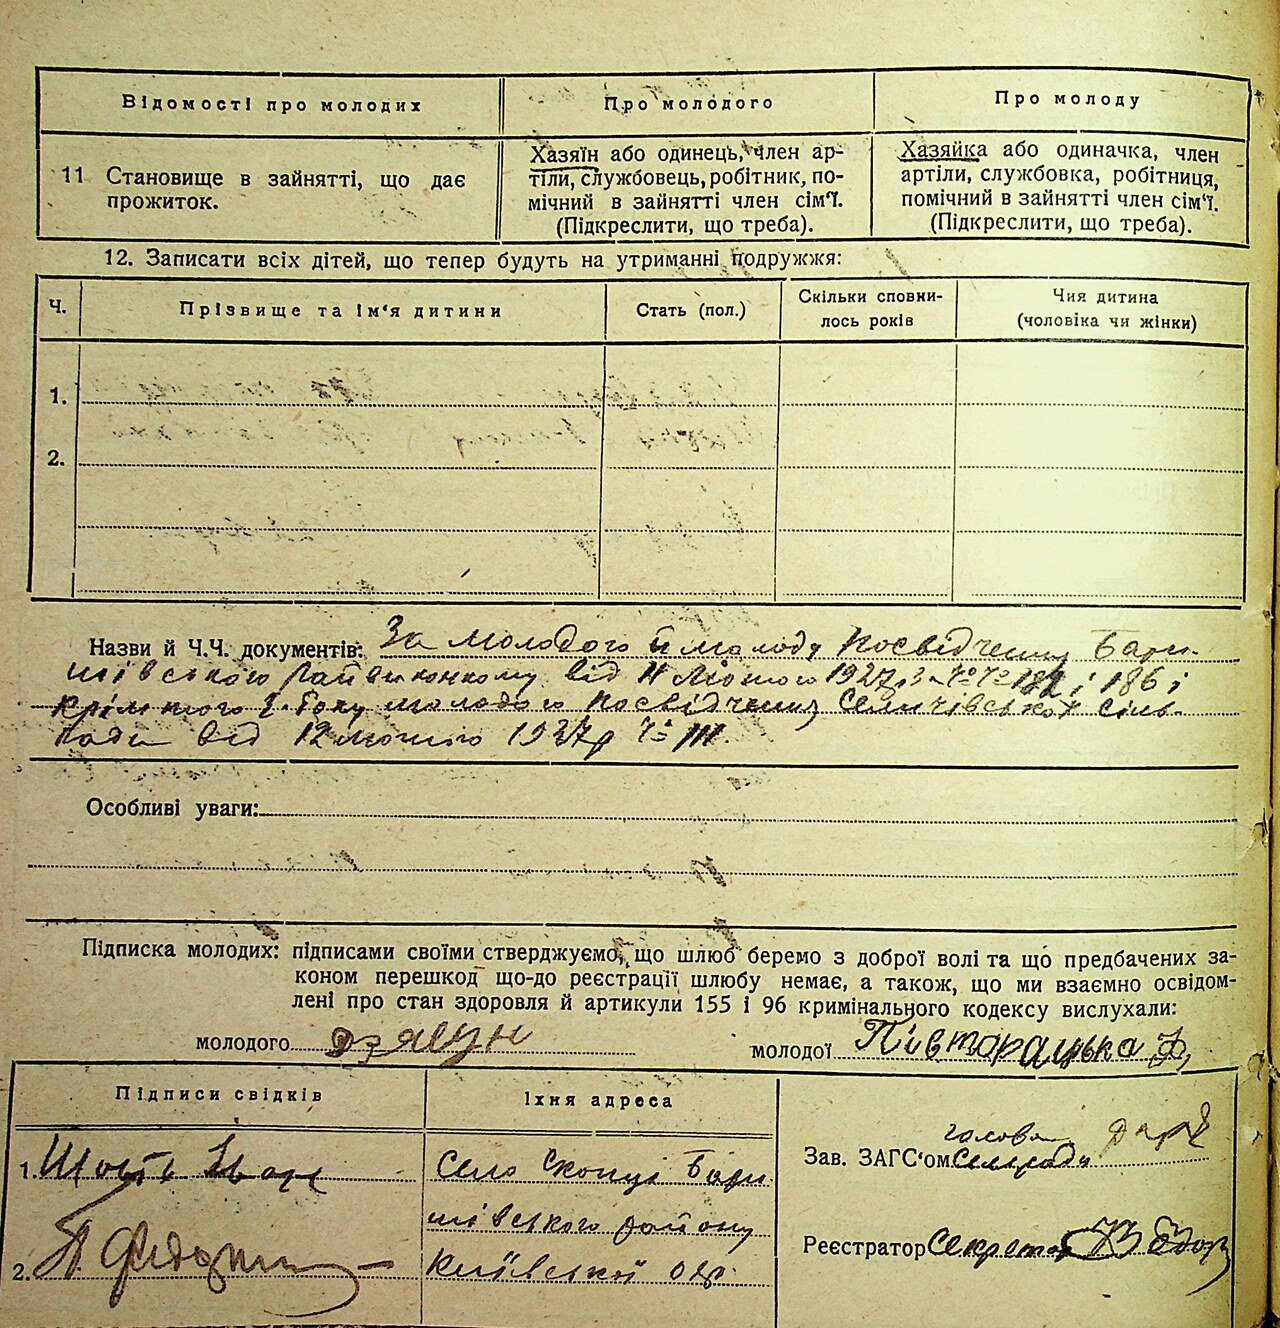 Відомості про молодих
Про молодого
Про молоду
11 Становище в зайнятті, що дає
прожиток.
Хазяїн або одинець, член ар-
тіли, службовець, робітник, по-
мічний в зайнятті член сім'ї.
(Підкреслити, що треба).
Хазяйка або одиначка, член
артіли, службовка, робітниця,
помічний в зайнятті член сім'ї.
(Підкреслити, що треба).
12. Записати всіх дітей, що тепер будуть на утриманні подружжя:
Ч.
Прізвище та ім'я дитини
Стать (пол.)
Скільки сповни-
лось років
Чия дитина
(чоловіка чи жінки)
1.
2.
Назви й Ч.Ч. документів: За молодого й молоду посвідчення Бари-
шівського Райвиконкому від 11 Лютого 1927 і 186 і
крім того з боку молодого посвідчення Селичівської сіль-
ради від 12 лютого 1927р
Особливі уваги:
Підписка молодих: підписами своїми стверджуємо, що шлюб беремо з доброї волі та що предбачених за-
коном перешкод що-до реєстрації шлюбу немає, а також, що ми взаємно освідом-
лені про стан здоровля й артикули 155 і 96 кримінального кодексу вислухали:
молодого
молодої Півторацька
Підписи свідків
Їхня адреса
1. Шость Іван
Село Скопці Бари
шівського району
2.
Київської окр.
Зав. ЗАГС'ом
голова
Сельради
Реєстратор Секретар